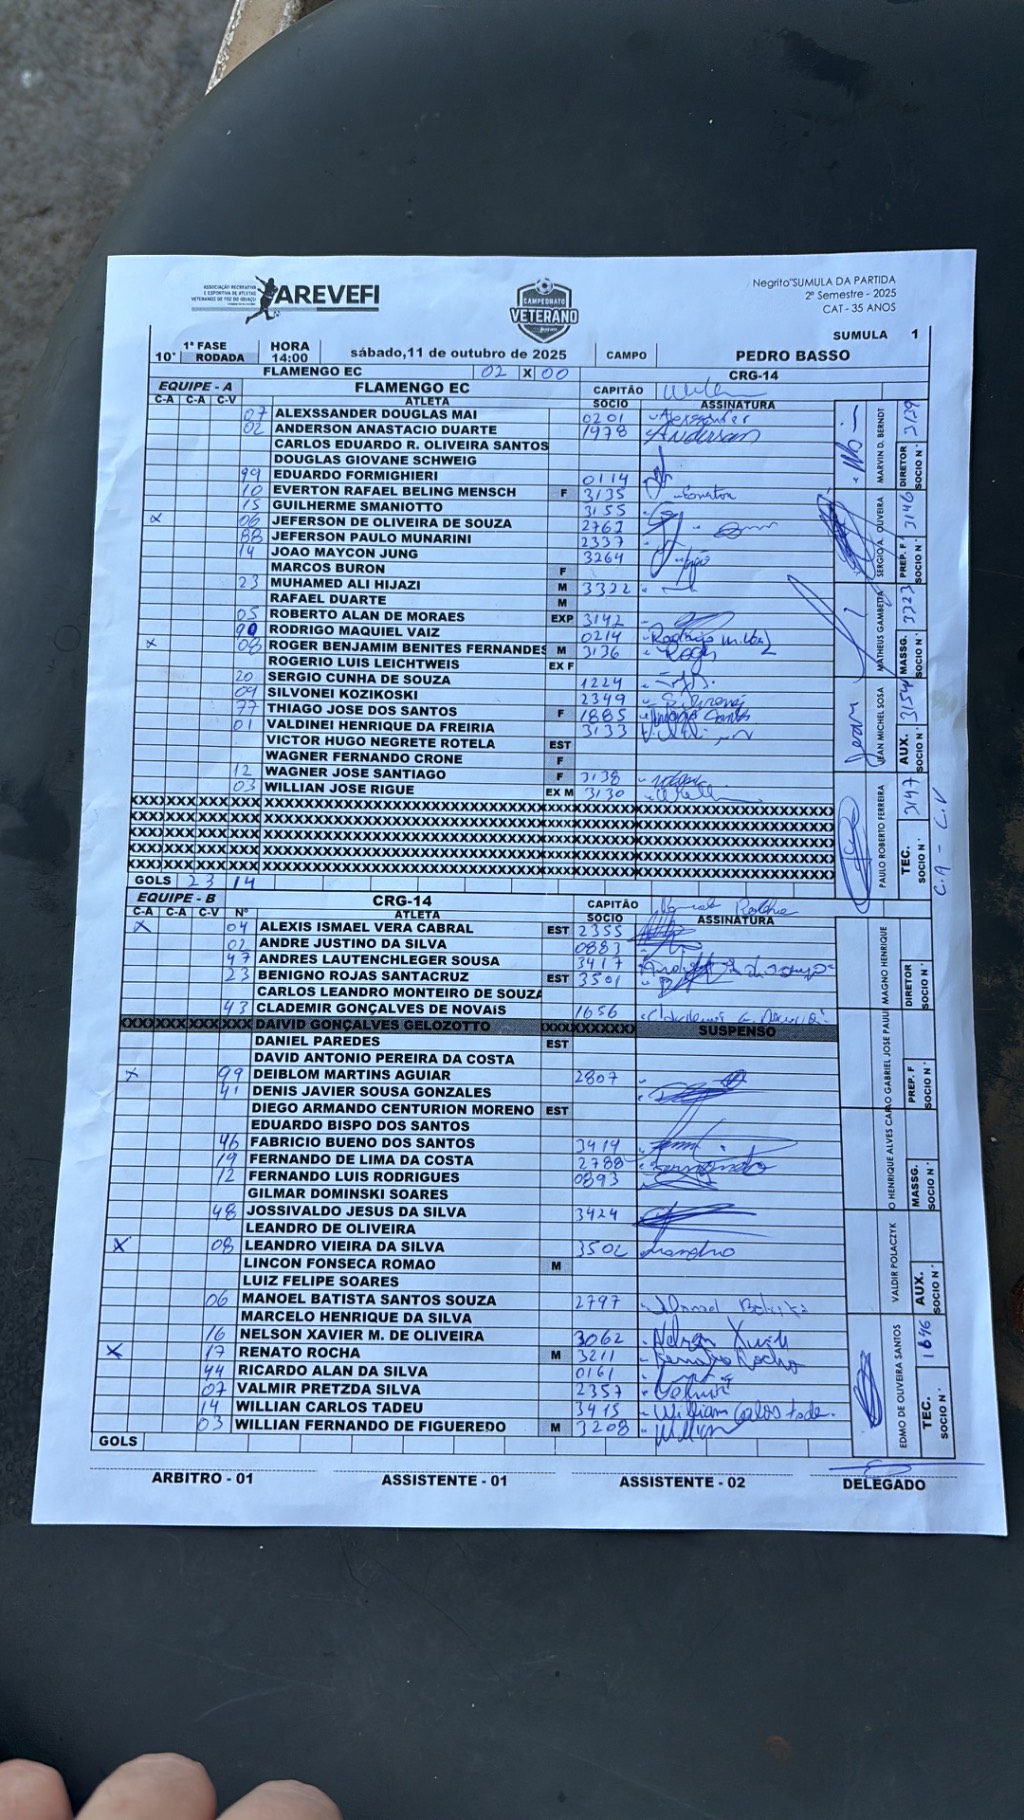 ASSOCIAÇÃO RECREATIVA
E ESPORTIVA DE ATLETAS
VETERANOS DE FOZ DO IGUAÇU
AREVEFI
CAMPEONATO
VETERANO
Negrito"SUMULA DA PARTIDA
2º Semestre - 2025
CAT - 35 ANOS
SUMULA 1
10ª 1ª FASE RODADA HORA 14:00 sábado,11 de outubro de 2025 CAMPO PEDRO BASSO
FLAMENGO EC 02 X 00 CRG-14
EQUIPE - A FLAMENGO EC CAPITÃO
C-A C-A C-V ATLETA SOCIO ASSINATURA
07 ALEXSSANDER DOUGLAS MAI 0201 Alexssander
02 ANDERSON ANASTACIO DUARTE 1978 Anderson
CARLOS EDUARDO R. OLIVEIRA SANTOS
DOUGLAS GIOVANE SCHWEIG
99 EDUARDO FORMIGHIERI 0114
10 EVERTON RAFAEL BELING MENSCH F 3135 Everton
15 GUILHERME SMANIOTTO 3155
x 06 JEFERSON DE OLIVEIRA DE SOUZA 2762
88 JEFERSON PAULO MUNARINI 2337
14 JOAO MAYCON JUNG 3264 João
MARCOS BURON F
23 MUHAMED ALI HIJAZI M 3322
RAFAEL DUARTE M
05 ROBERTO ALAN DE MORAES EXP 3142
90 RODRIGO MAQUIEL VAIZ 0214 Rodrigo M. Vaiz
x 08 ROGER BENJAMIM BENITES FERNANDES M 3136 Roger
ROGERIO LUIS LEICHTWEIS EX F
20 SERGIO CUNHA DE SOUZA 1224
09 SILVONEI KOZIKOSKI 2349 Silvonei
77 THIAGO JOSE DOS SANTOS F 1885 Thiago Santos
01 VALDINEI HENRIQUE DA FREIRIA 3133
VICTOR HUGO NEGRETE ROTELA EST
WAGNER FERNANDO CRONE F
12 WAGNER JOSE SANTIAGO F 3138
03 WILLIAN JOSE RIGUE EX M 3130
GOLS 23 14
MARVIN D. BERNDT DIRETOR SOCIO Nº 3129
SERGIO A. OLIVEIRA PREP. F SOCIO Nº 3146
MATHEUS GAMBETTA MASSG. SOCIO Nº 3323
Jean JEAN MICHEL SOSA AUX. SOCIO Nº 3154
PAULO ROBERTO FERREIRA TEC. SOCIO Nº 3147
C.A - C.V
EQUIPE - B CRG-14 CAPITÃO Renato Rocha
C-A C-A C-V Nº ATLETA SOCIO ASSINATURA
x 04 ALEXIS ISMAEL VERA CABRAL EST 2355
02 ANDRE JUSTINO DA SILVA 0883
47 ANDRES LAUTENCHLEGER SOUSA 3417
23 BENIGNO ROJAS SANTACRUZ EST 3501
CARLOS LEANDRO MONTEIRO DE SOUZA
43 CLADEMIR GONÇALVES DE NOVAIS 1656
XXX XXX XXX XXX DAIVID GONÇALVES GELOZOTTO SUSPENSO
DANIEL PAREDES EST
DAVID ANTONIO PEREIRA DA COSTA
x 99 DEIBLOM MARTINS AGUIAR 2807
41 DENIS JAVIER SOUSA GONZALES
DIEGO ARMANDO CENTURION MORENO EST
EDUARDO BISPO DOS SANTOS
46 FABRICIO BUENO DOS SANTOS 3414
19 FERNANDO DE LIMA DA COSTA 2788 Fernando
12 FERNANDO LUIS RODRIGUES 0893
GILMAR DOMINSKI SOARES
48 JOSSIVALDO JESUS DA SILVA 3424
LEANDRO DE OLIVEIRA
X 08 LEANDRO VIEIRA DA SILVA 3502 Leandro
LINCON FONSECA ROMAO M
LUIZ FELIPE SOARES
06 MANOEL BATISTA SANTOS SOUZA 2797 Manoel Batista
MARCELO HENRIQUE DA SILVA
16 NELSON XAVIER M. DE OLIVEIRA 3062 Nelson Xavier
X 17 RENATO ROCHA M 3211 Renato Rocha
44 RICARDO ALAN DA SILVA 0161
07 VALMIR PRETZDA SILVA 2357 Valmir
14 WILLIAN CARLOS TADEU 3415 William Carlos Tadeu
03 WILLIAN FERNANDO DE FIGUEREDO M 3208 Willian
GOLS
MAGNO HENRIQUE DIRETOR SOCIO Nº
GABRIEL JOSE PAULI PREP. F SOCIO Nº
O HENRIQUE ALVES CARAO MASSG. SOCIO Nº
VALDIR POLACZYK AUX. SOCIO Nº
EDMO DE OLIVEIRA SANTOS TEC. SOCIO Nº 1646
ARBITRO - 01 ASSISTENTE - 01 ASSISTENTE - 02 DELEGADO